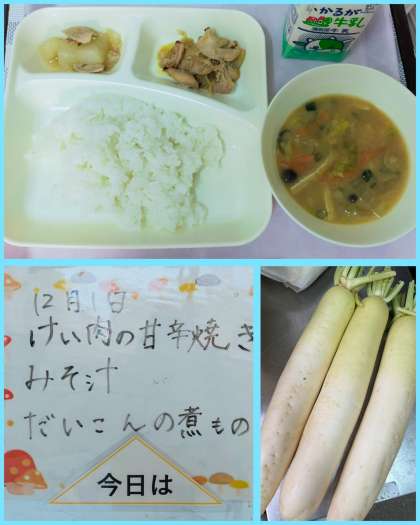 いかるが
牛乳
12月1日
けい肉の甘辛焼き
みそ汁
だいこんの煮もの
今日は